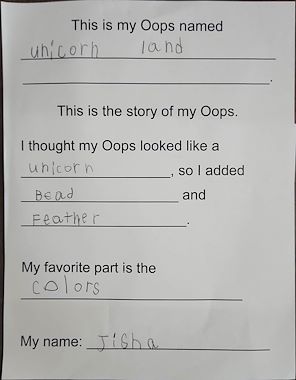 This is my Oops named
unicorn land
.
This is the story of my Oops.
I thought my Oops looked like a
unicorn, so I added
Bead and
Feather.
My favorite part is the
colors
My name: Jisha